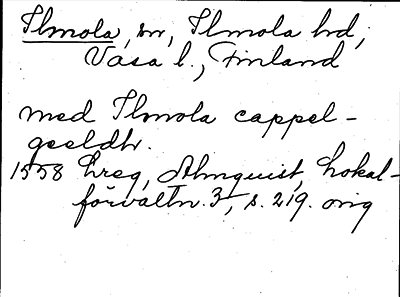 Ilmola, sn, Ilmola hd,
Vasa l., Finland
med Ilmola cappel-
geeldh.
1558 Lreg, Almquist, Lokal-
förvaltn. 3, s. 219. orig